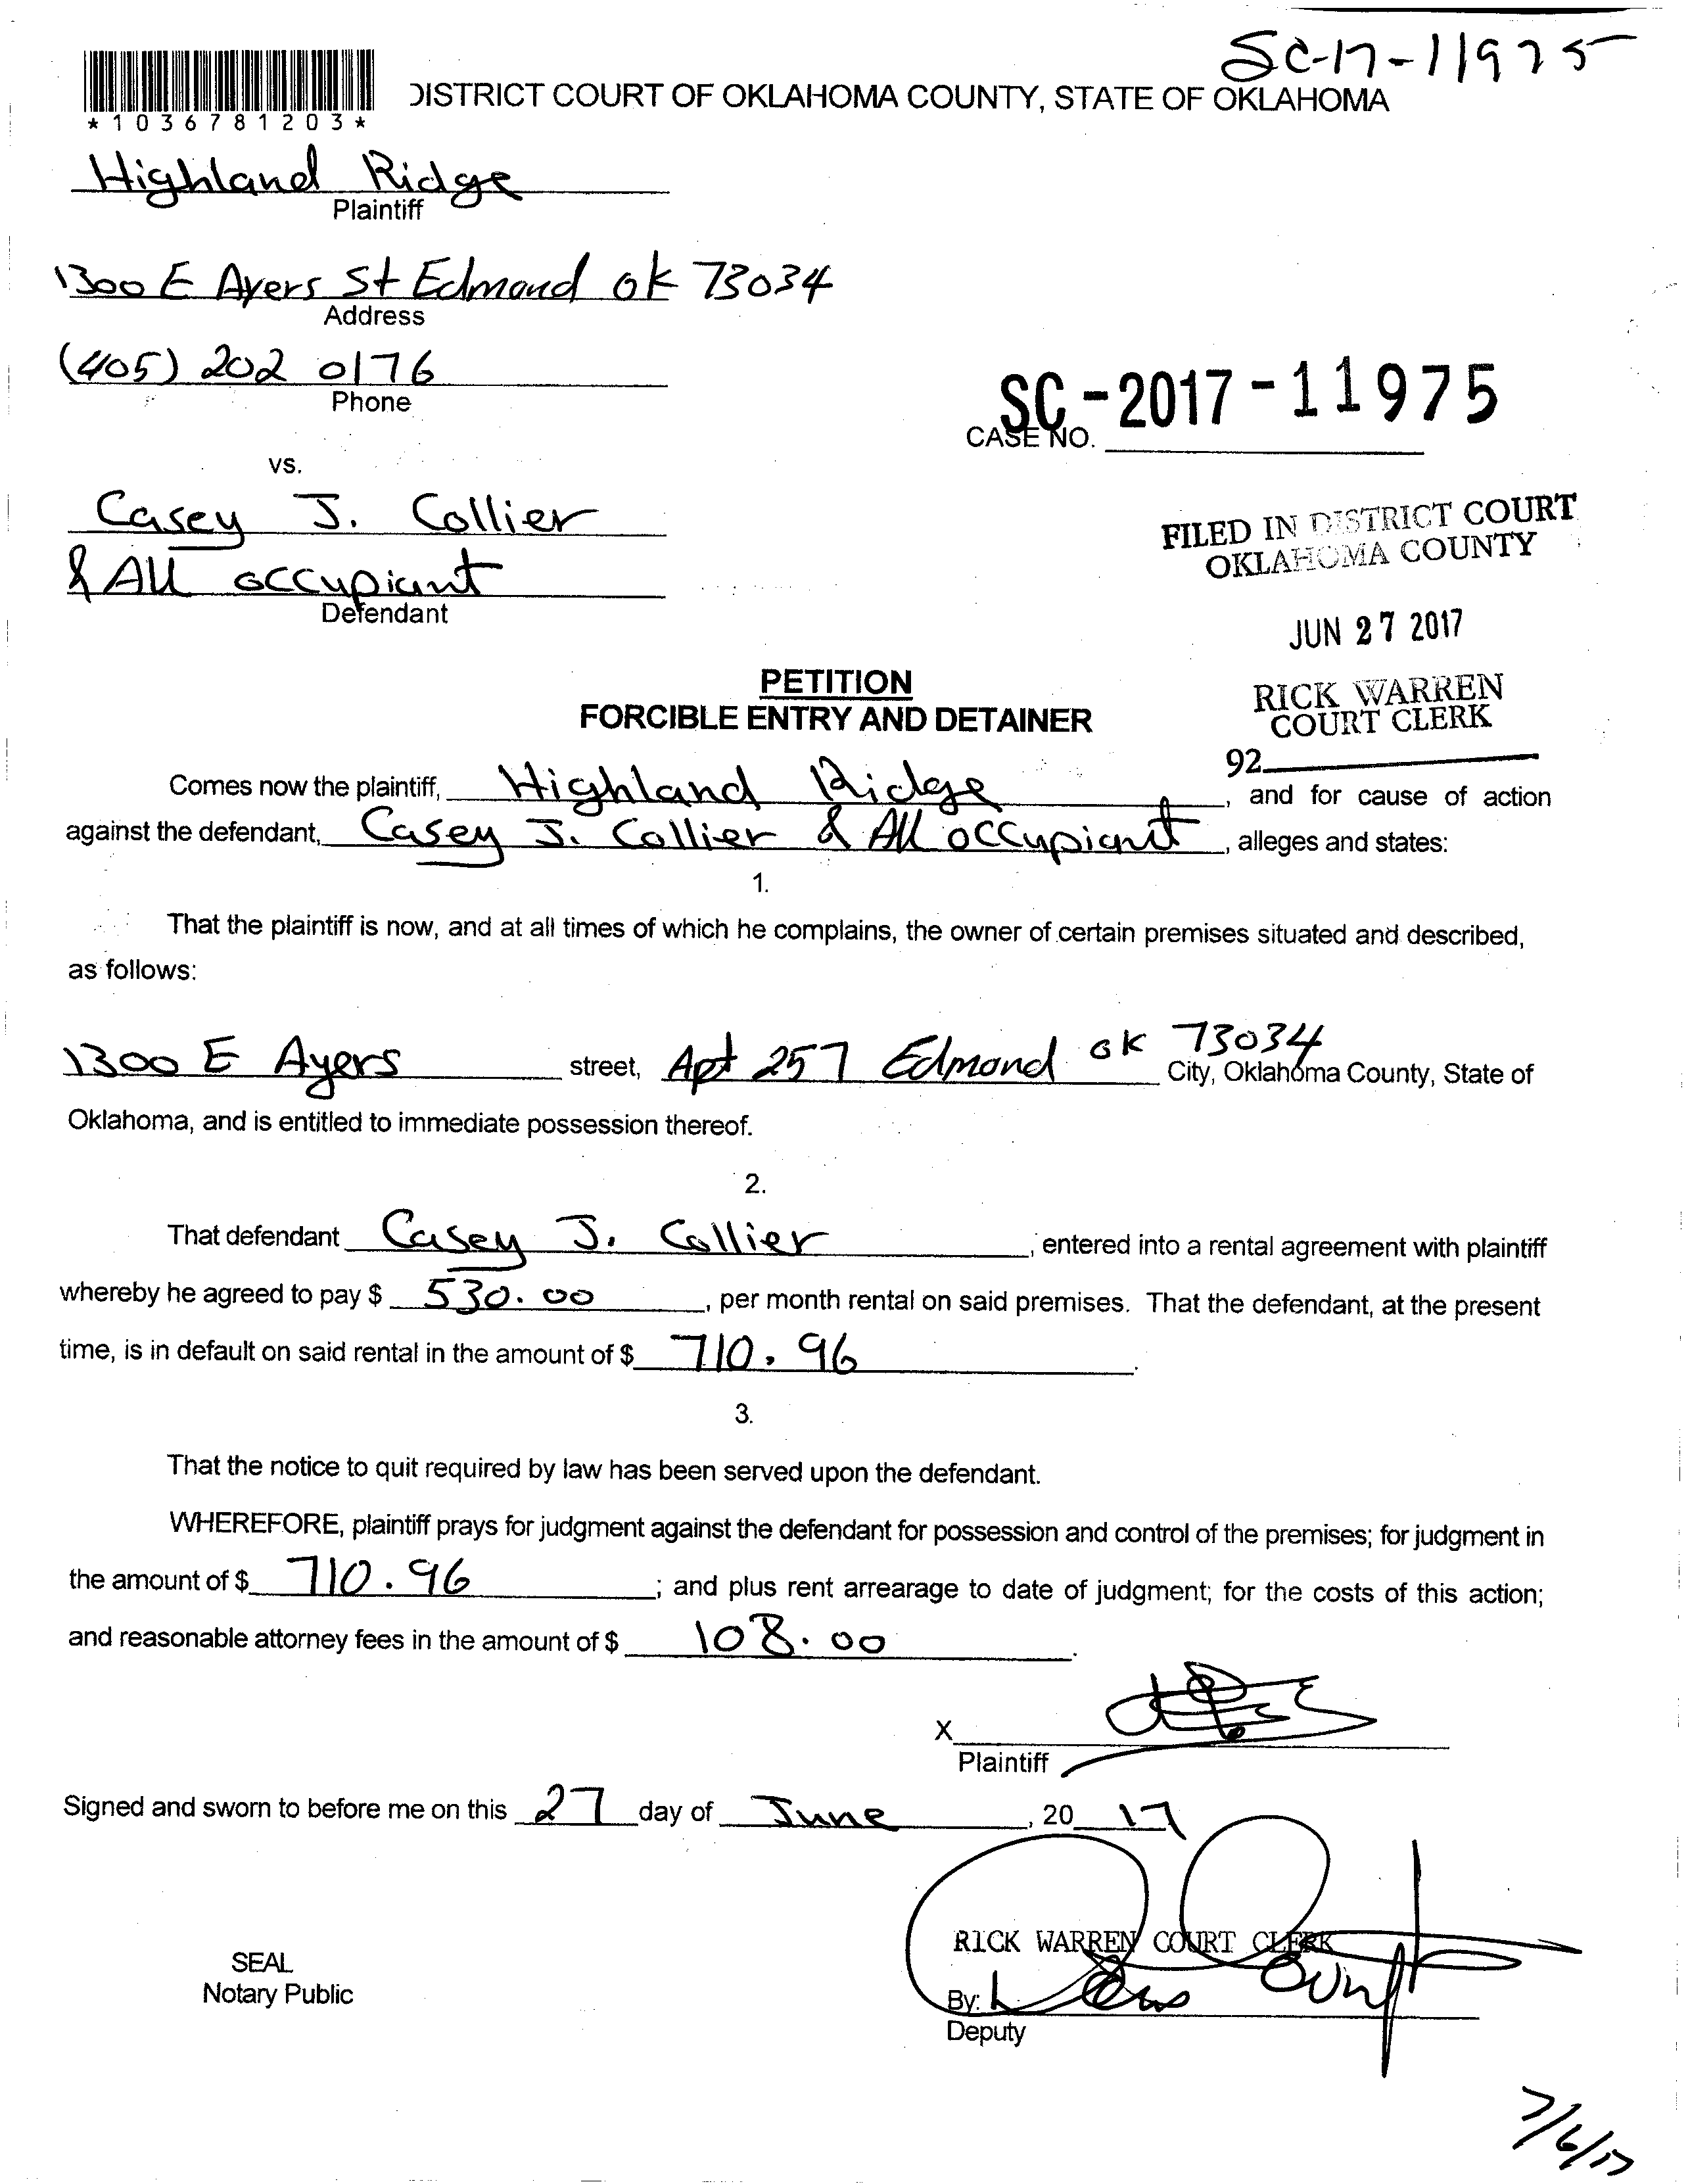 SC-17-11975
*1036781203*
DISTRICT COURT OF OKLAHOMA COUNTY, STATE OF OKLAHOMA
Highland Ridge
Plaintiff
1300 E Ayers St Edmond ok 73034
Address
(405) 202 0176
Phone
SC-2017-11975
CASE NO.
vs.
Casey J. Collier
& All occupiant
Defendant
FILED IN DISTRICT COURT
OKLAHOMA COUNTY
JUN 27 2017
RICK WARREN
COURT CLERK
92
PETITION
FORCIBLE ENTRY AND DETAINER
Comes now the plaintiff, Highland Ridge, and for cause of action
against the defendant, Casey J. Collier & All occupiant, alleges and states:
1.
That the plaintiff is now, and at all times of which he complains, the owner of certain premises situated and described,
as follows:
1300 E Ayers street, Apt 257 Edmond ok 73034 City, Oklahoma County, State of
Oklahoma, and is entitled to immediate possession thereof.
2.
That defendant Casey J. Collier, entered into a rental agreement with plaintiff
whereby he agreed to pay $ 530.00, per month rental on said premises. That the defendant, at the present
time, is in default on said rental in the amount of $ 710.96.
3.
That the notice to quit required by law has been served upon the defendant.
WHEREFORE, plaintiff prays for judgment against the defendant for possession and control of the premises; for judgment in
the amount of $ 710.96; and plus rent arrearage to date of judgment; for the costs of this action;
and reasonable attorney fees in the amount of $ 108.00.
X
Plaintiff
Signed and sworn to before me on this 27 day of June, 20 17
RICK WARREN COURT CLERK
SEAL
Notary Public
By:
Deputy
7/6/17